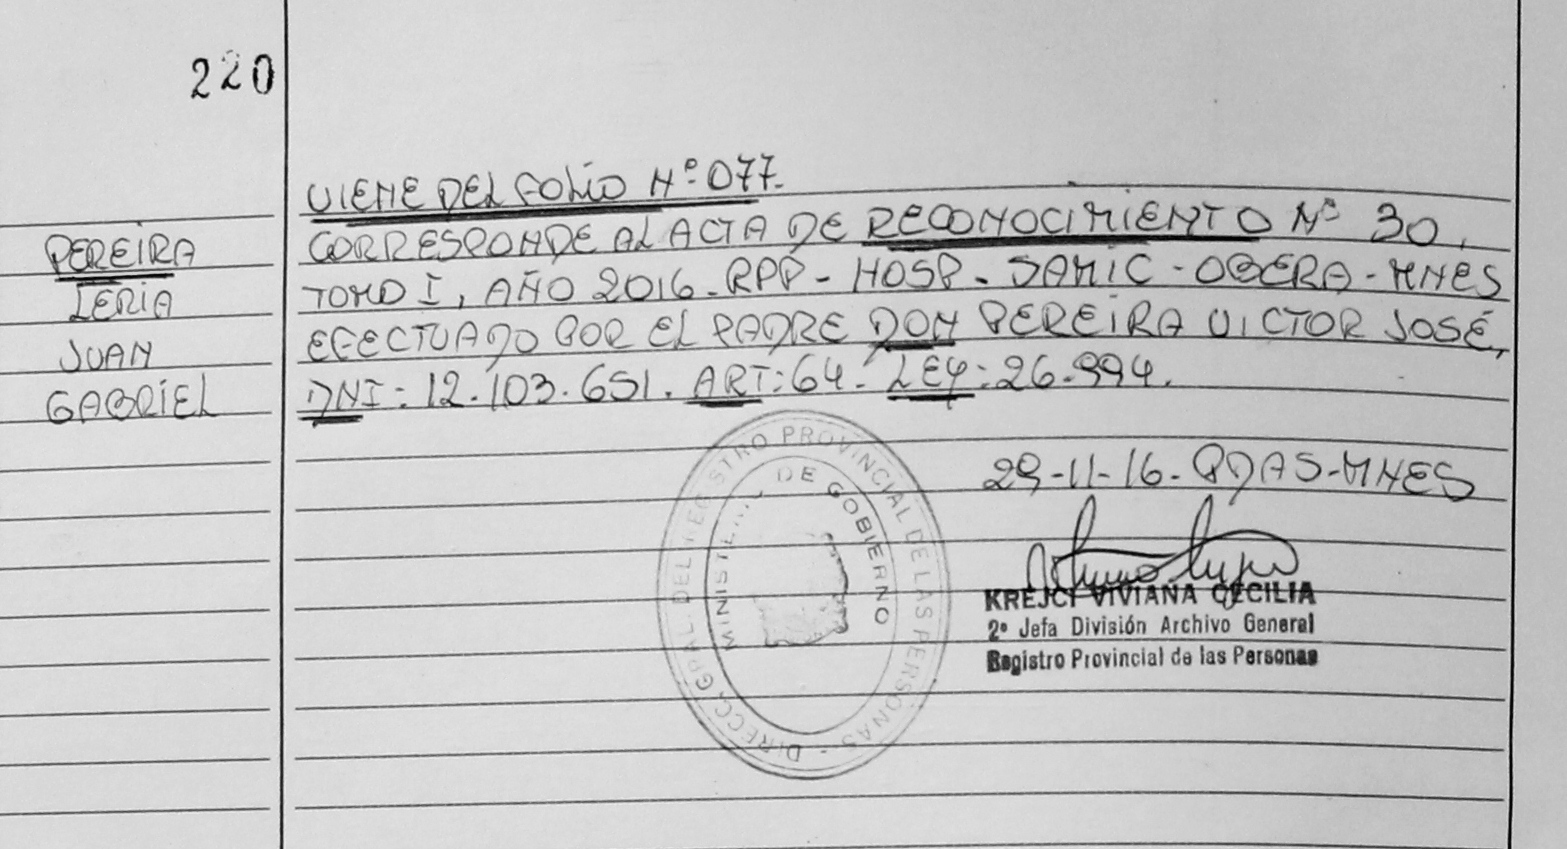 220
VIENE DEL FOLIO Nº 077.
PEREIRA
LERIA
JUAN
GABRIEL
CORRESPONDE AL ACTA DE RECONOCIMIENTO Nº 30,
TOMO I, AÑO 2016-RPP-HOSP-SAMIC-OBERA-MNES
EFECTUADO POR EL PADRE DON PEREIRA VICTOR JOSÉ,
DNI: 12.103.651. ART: 64. LEY: 26.994.
29-11-16-PDAS-MNES
KREJCI VIVIANA CECILIA
2º Jefa División Archivo General
Registro Provincial de las Personas
DIRECC. GRAL. DEL REGISTRO PROVINCIAL DE LAS PERSONAS -
DE GOBIERNO